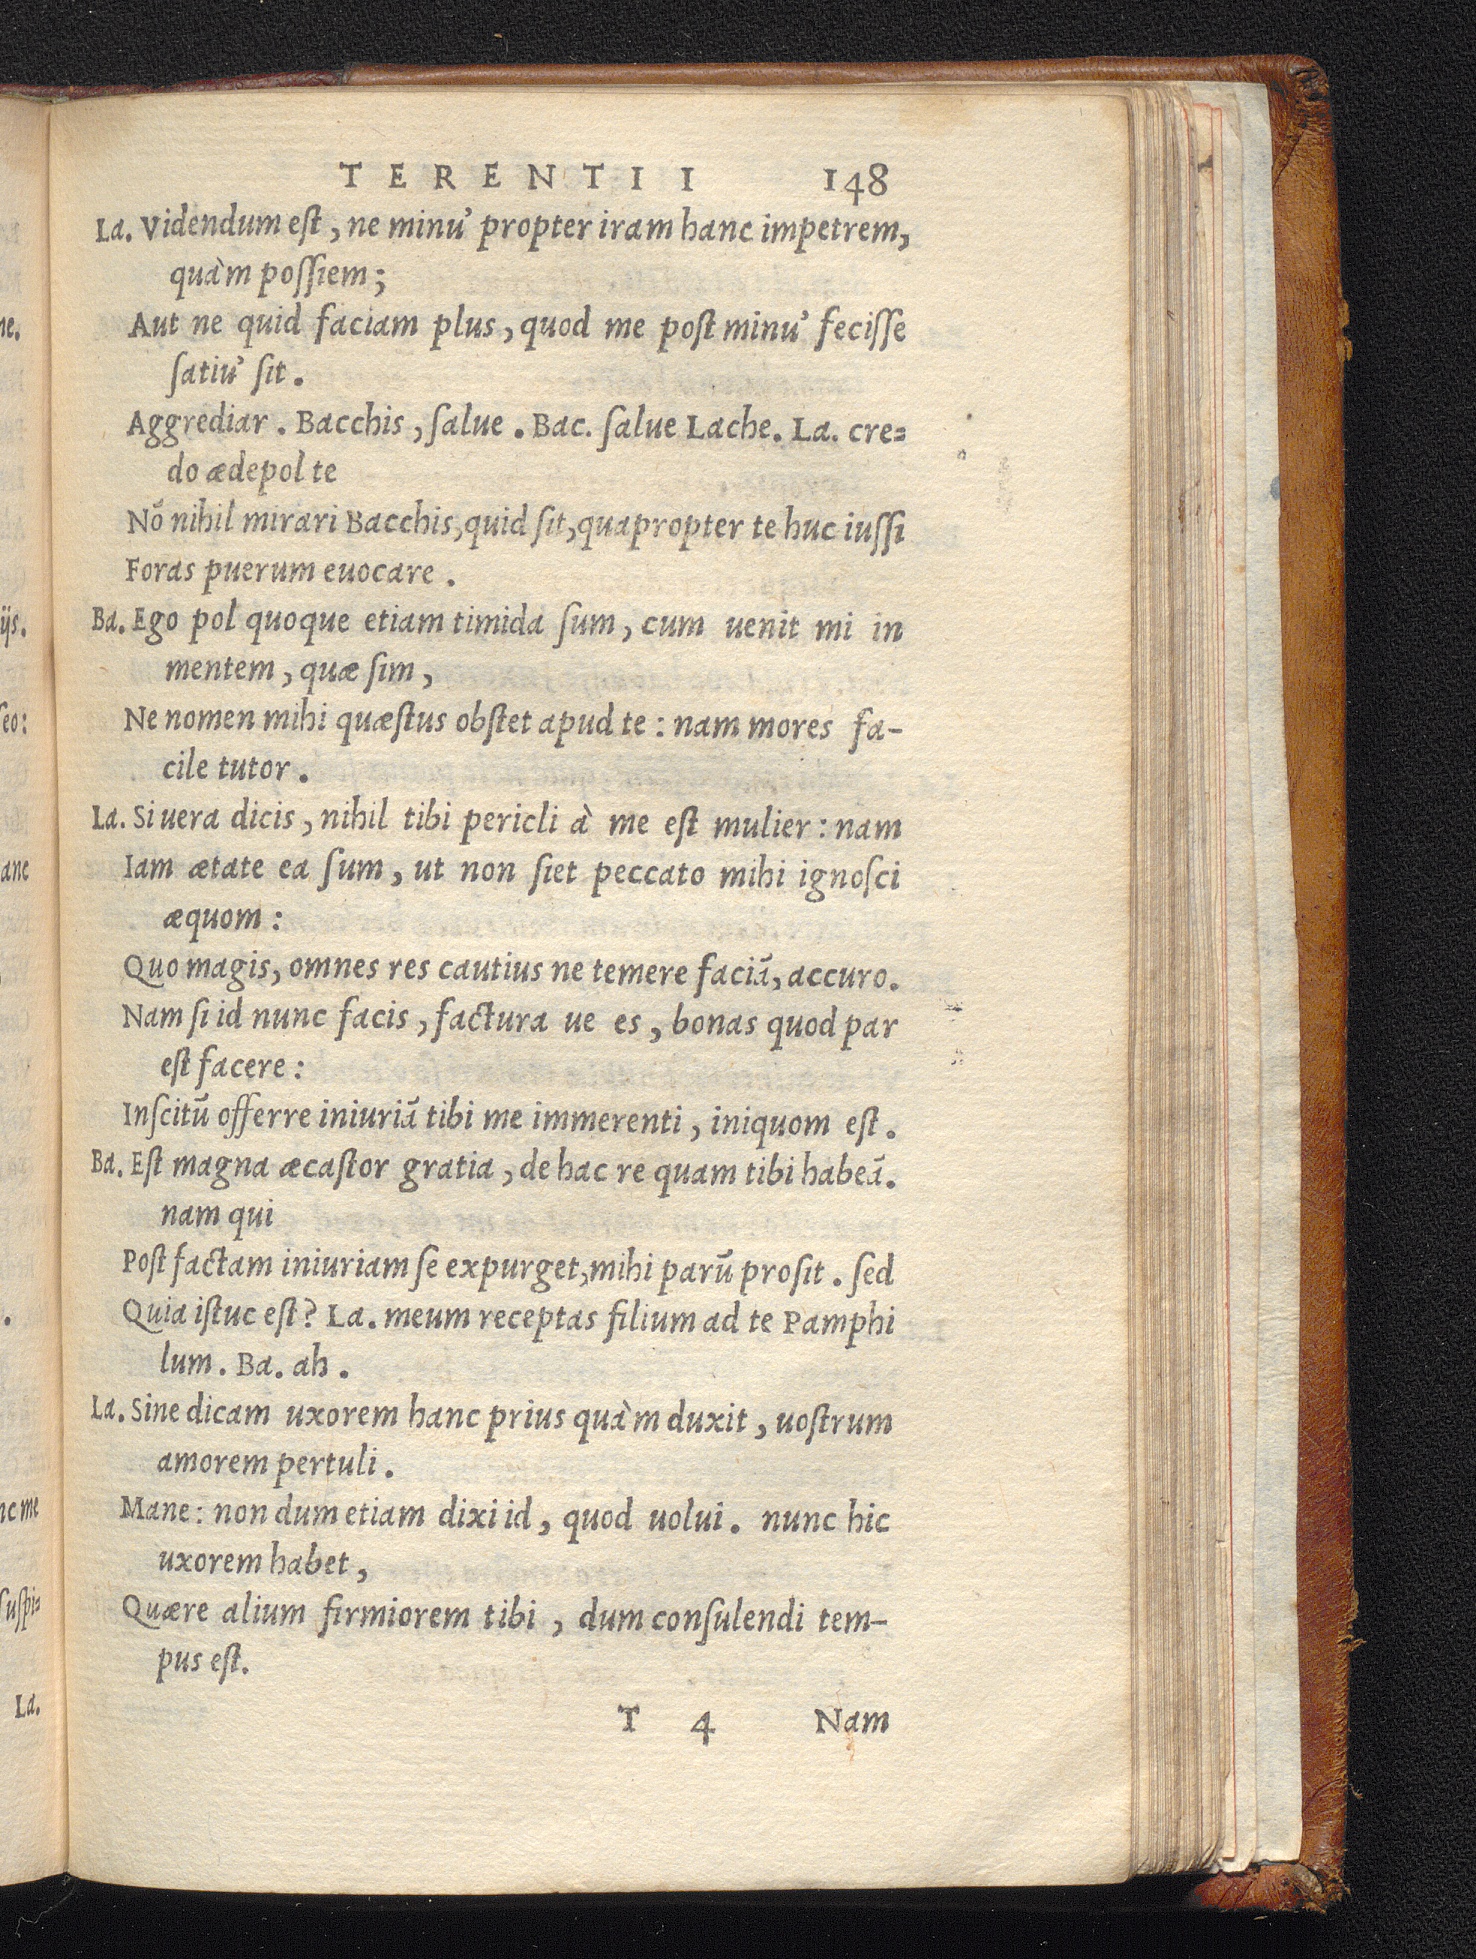 TERENTII 148
La. Videndum eſt, ne minu' propter iram hanc impetrem,
quàm poſſiem;
Aut ne quid faciam plus, quod me poſt minu' feciſſe
ſatiu' ſit.
Aggrediar. Bacchis, ſalue. Bac. ſalue Lache. La. cre=
do ædepol te
Nō nihil mirari Bacchis, quid ſit, quapropter te huc iuſſi
Foras puerum euocare.
Ba. Ego pol quoque etiam timida ſum, cum uenit mi in
mentem, quæ ſim,
Ne nomen mihi quæſtus obſtet apud te: nam mores fa-
cile tutor.
La. Si uera dicis, nihil tibi pericli à me eſt mulier: nam
Iam ætate ea ſum, ut non ſiet peccato mihi ignoſci
æquom:
Quo magis, omnes res cautius ne temere faciā, accuro.
Nam ſi id nunc facis, factura ue es, bonas quod par
eſt facere:
Inſcitū offerre iniuriā tibi me immerenti, iniquom eſt.
Ba. Eſt magna æcaſtor gratia, de hac re quam tibi habeā.
nam qui
Poſt factam iniuriam ſe expurget, mihi parū proſit. ſed
Quia iſtuc eſt? La. meum receptas filium ad te Pamphi
lum. Ba. ah.
La. Sine dicam uxorem hanc prius quàm duxit, uoſtrum
amorem pertuli.
Mane: non dum etiam dixi id, quod uolui. nunc hic
uxorem habet,
Quære alium firmiorem tibi, dum conſulendi tem-
pus eſt.
T 4 Nam